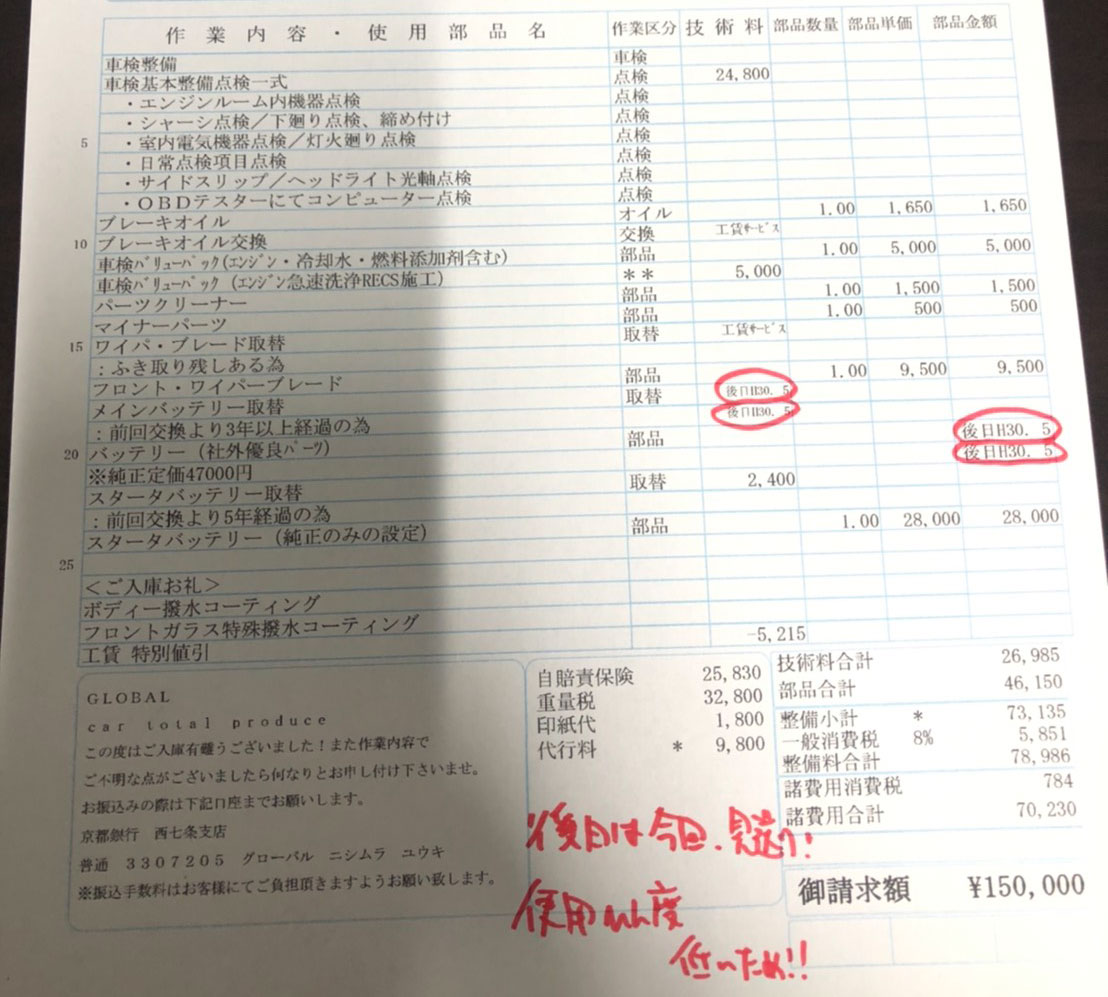 作業内容・使用部品名 作業区分 技術料 部品数量 部品単価 部品金額
車検整備 車検
車検基本整備点検一式 点検 24,800
・エンジンルーム内機器点検 点検
・シャーシ点検／下廻り点検、締め付け 点検
5 ・室内電気機器点検／灯火廻り点検 点検
・日常点検項目点検 点検
・サイドスリップ／ヘッドライト光軸点検 点検
・ＯＢＤテスターにてコンピューター点検 点検
ブレーキオイル オイル 1.00 1,650 1,650
10 ブレーキオイル交換 交換 工賃ｻｰﾋﾞｽ
車検ﾊﾞﾘｭｰﾊﾟｯｸ(ｴﾝｼﾞﾝ・冷却水・燃料添加剤含む) 部品 1.00 5,000 5,000
車検ﾊﾞﾘｭｰﾊﾟｯｸ (ｴﾝｼﾞﾝ急速洗浄RECS施工) ＊＊ 5,000
パーツクリーナー 部品 1.00 1,500 1,500
マイナーパーツ 部品 1.00 500 500
15 ワイパ・ブレード取替 取替 工賃ｻｰﾋﾞｽ
：ふき取り残しある為
フロント・ワイパーブレード 部品 1.00 9,500 9,500
メインバッテリー取替 取替 後日H30. 5
：前回交換より3年以上経過の為 後日H30. 5
20 バッテリー（社外優良ﾊﾟｰﾂ） 部品 後日H30. 5
※純正定価47000円 後日H30. 5
スタータバッテリー取替 取替 2,400
：前回交換より5年経過の為
スタータバッテリー（純正のみの設定） 部品 1.00 28,000 28,000
25
＜ご入庫お礼＞
ボディー撥水コーティング
フロントガラス特殊撥水コーティング
工賃 特別値引 -5,215
GLOBAL
car total produce
この度はご入庫有難うございました！また作業内容で
ご不明な点がございましたら何なりとお申し付け下さいませ。
お振込みの際は下記口座までお願いします。
京都銀行 西七条支店
普通 ３３０７２０５ グローバル ニシムラ ユウキ
※振込手数料はお客様にてご負担頂きますようお願い致します。
自賠責保険 25,830
重量税 32,800
印紙代 1,800
代行料 * 9,800
技術料合計 26,985
部品合計 46,150
整備小計 * 73,135
一般消費税 8% 5,851
整備料合計 78,986
諸費用消費税 784
諸費用合計 70,230
御請求額 ¥150,000
後日は今回、見送り!
使用ひん度
低いため!!